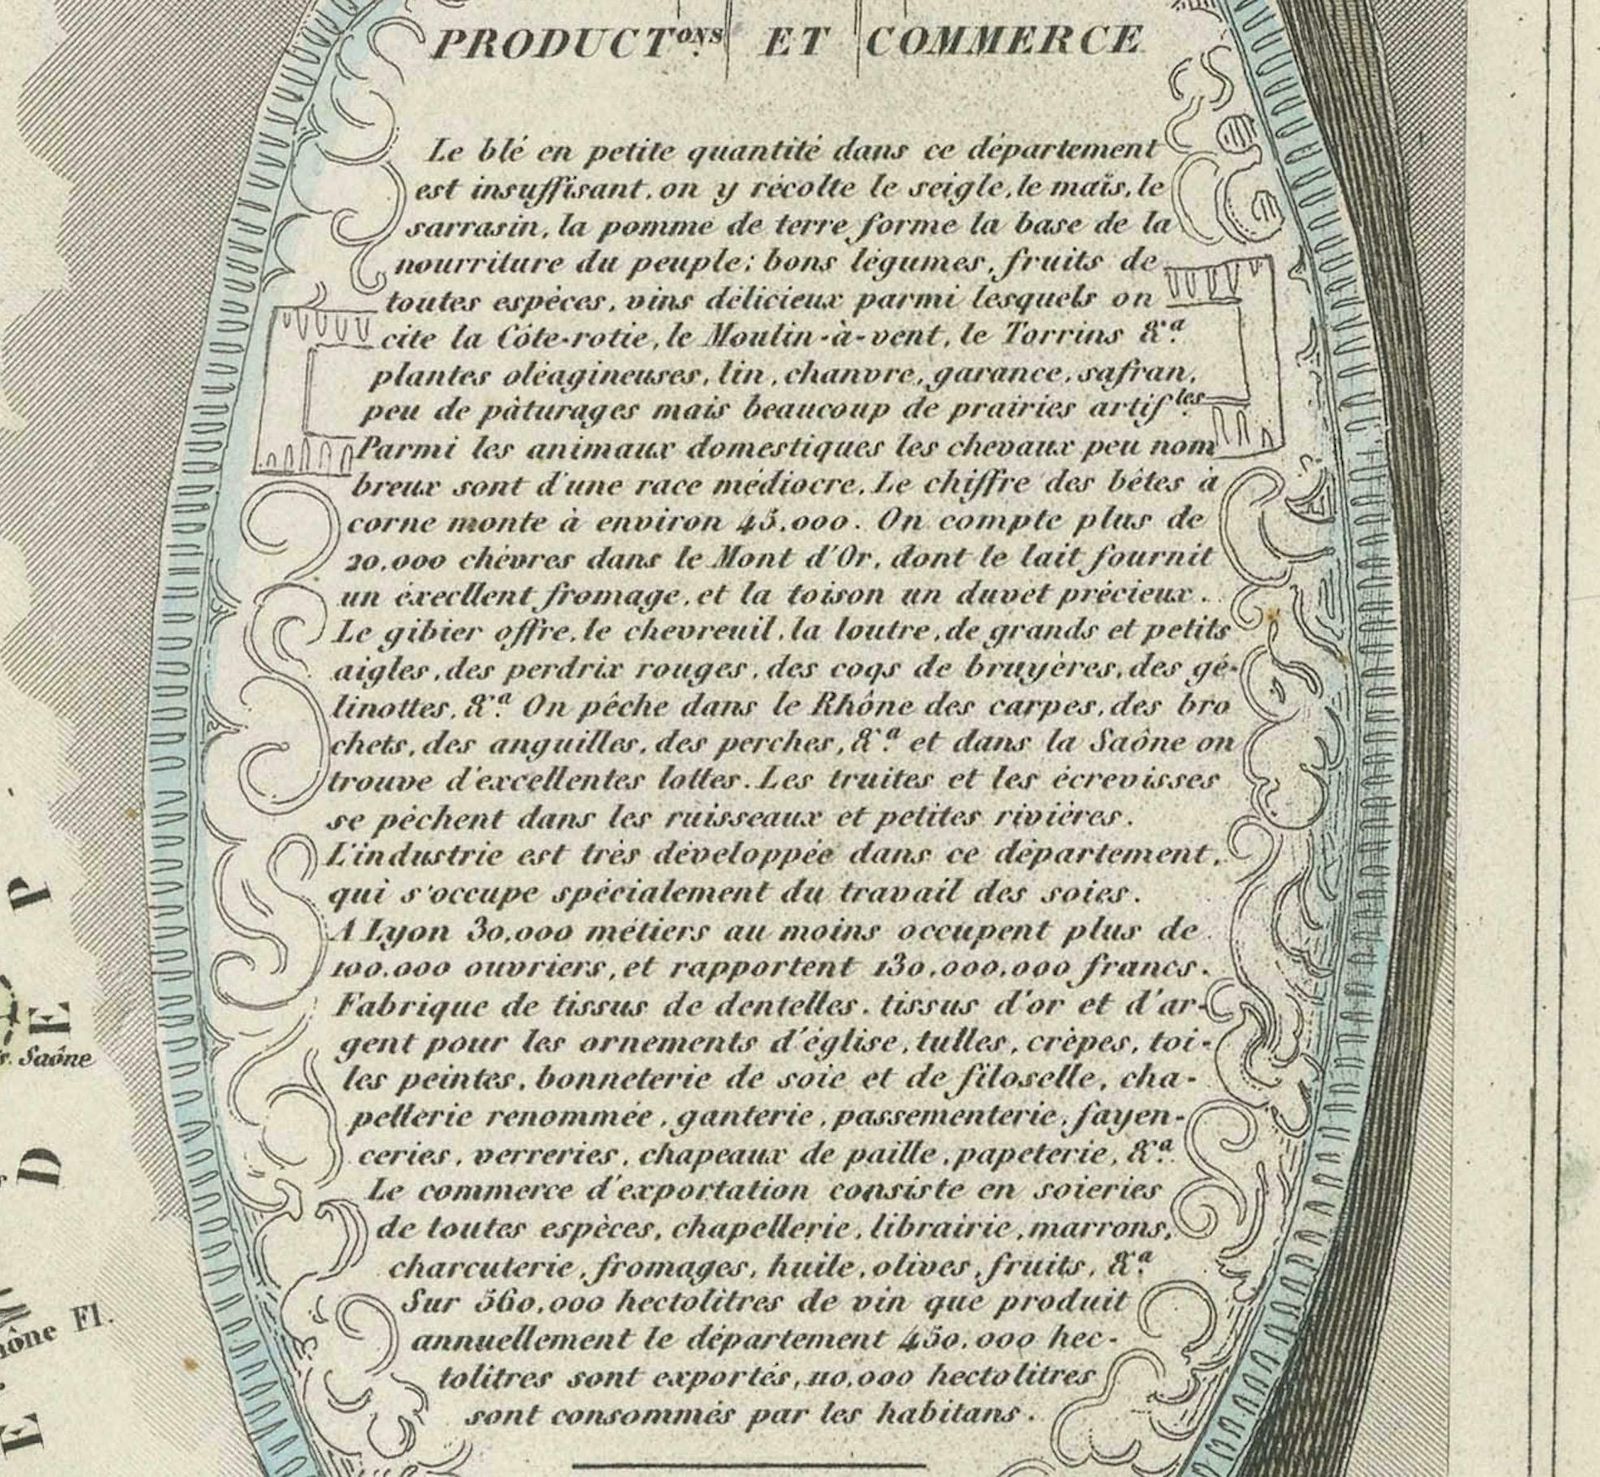 PRODUCTons ET COMMERCE
Le blé en petite quantité dans ce département
est insuffisant, on y récolte le seigle, le maïs, le
sarrasin, la pomme de terre forme la base de la
nourriture du peuple; bons légumes, fruits de
toutes espèces, vins délicieux parmi lesquels on
cite la Côte-rotie, le Moulin-à-vent, le Torrins &a.
plantes oléagineuses, lin, chanvre, garance, safran,
peu de pâturages mais beaucoup de prairies artifles
Parmi les animaux domestiques les chevaux peu nom
breux sont d'une race médiocre. Le chiffre des bêtes à
corne monte à environ 45.000. On compte plus de
20.000 chèvres dans le Mont d'Or, dont le lait fournit
un éxecllent fromage, et la toison un duvet précieux.
Le gibier offre, le chevreuil, la loutre, de grands et petits
aigles, des perdrix rouges, des coqs de bruyères, des gé-
linottes, &a. On pêche dans le Rhône des carpes, des bro
chets, des anguilles, des perches, &a. et dans la Saône on
trouve d'excellentes lottes. Les truites et les écrevisses
se pêchent dans les ruisseaux et petites rivières.
L'industrie est très développée dans ce département,
qui s'occupe spécialement du travail des soies.
A Lyon 30.000 métiers au moins occupent plus de
100.000 ouvriers, et rapportent 130.000.000 francs.
Fabrique de tissus de dentelles, tissus d'or et d'ar-
gent pour les ornements d'église, tulles, crèpes, toi-
les peintes, bonneterie de soie et de filoselle, cha-
pellerie renommée, ganterie, passementerie, fayen-
ceries, verreries, chapeaux de paille, papeterie, &a.
Le commerce d'exportation consiste en soieries
de toutes espèces, chapellerie, librairie, marrons,
charcuterie, fromages, huile, olives, fruits, &a.
Sur 560.000 hectolitres de vin que produit
annuellement le département 450.000 hec-
tolitres sont exportés, 110.000 hectolitres
sont consommés par les habitans.
P
E
s. Saône
D
ône Fl.
E